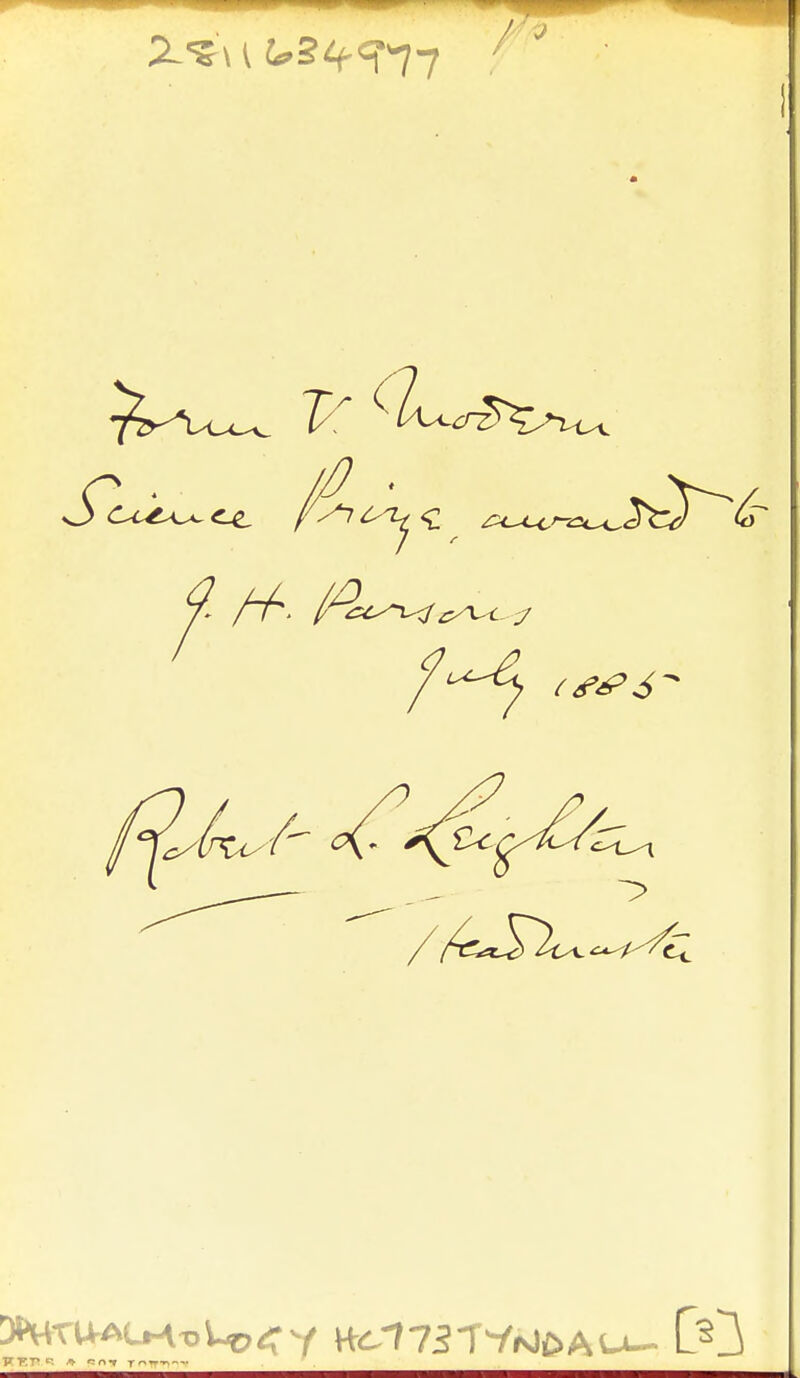 2811634977
Form V. Modern
Science Prize, awarded to
J. H. Parsons
July 1885
Robert L. Leighton
Headmaster
OPHTHALMOLOGY HC173 TYNDALL [3]